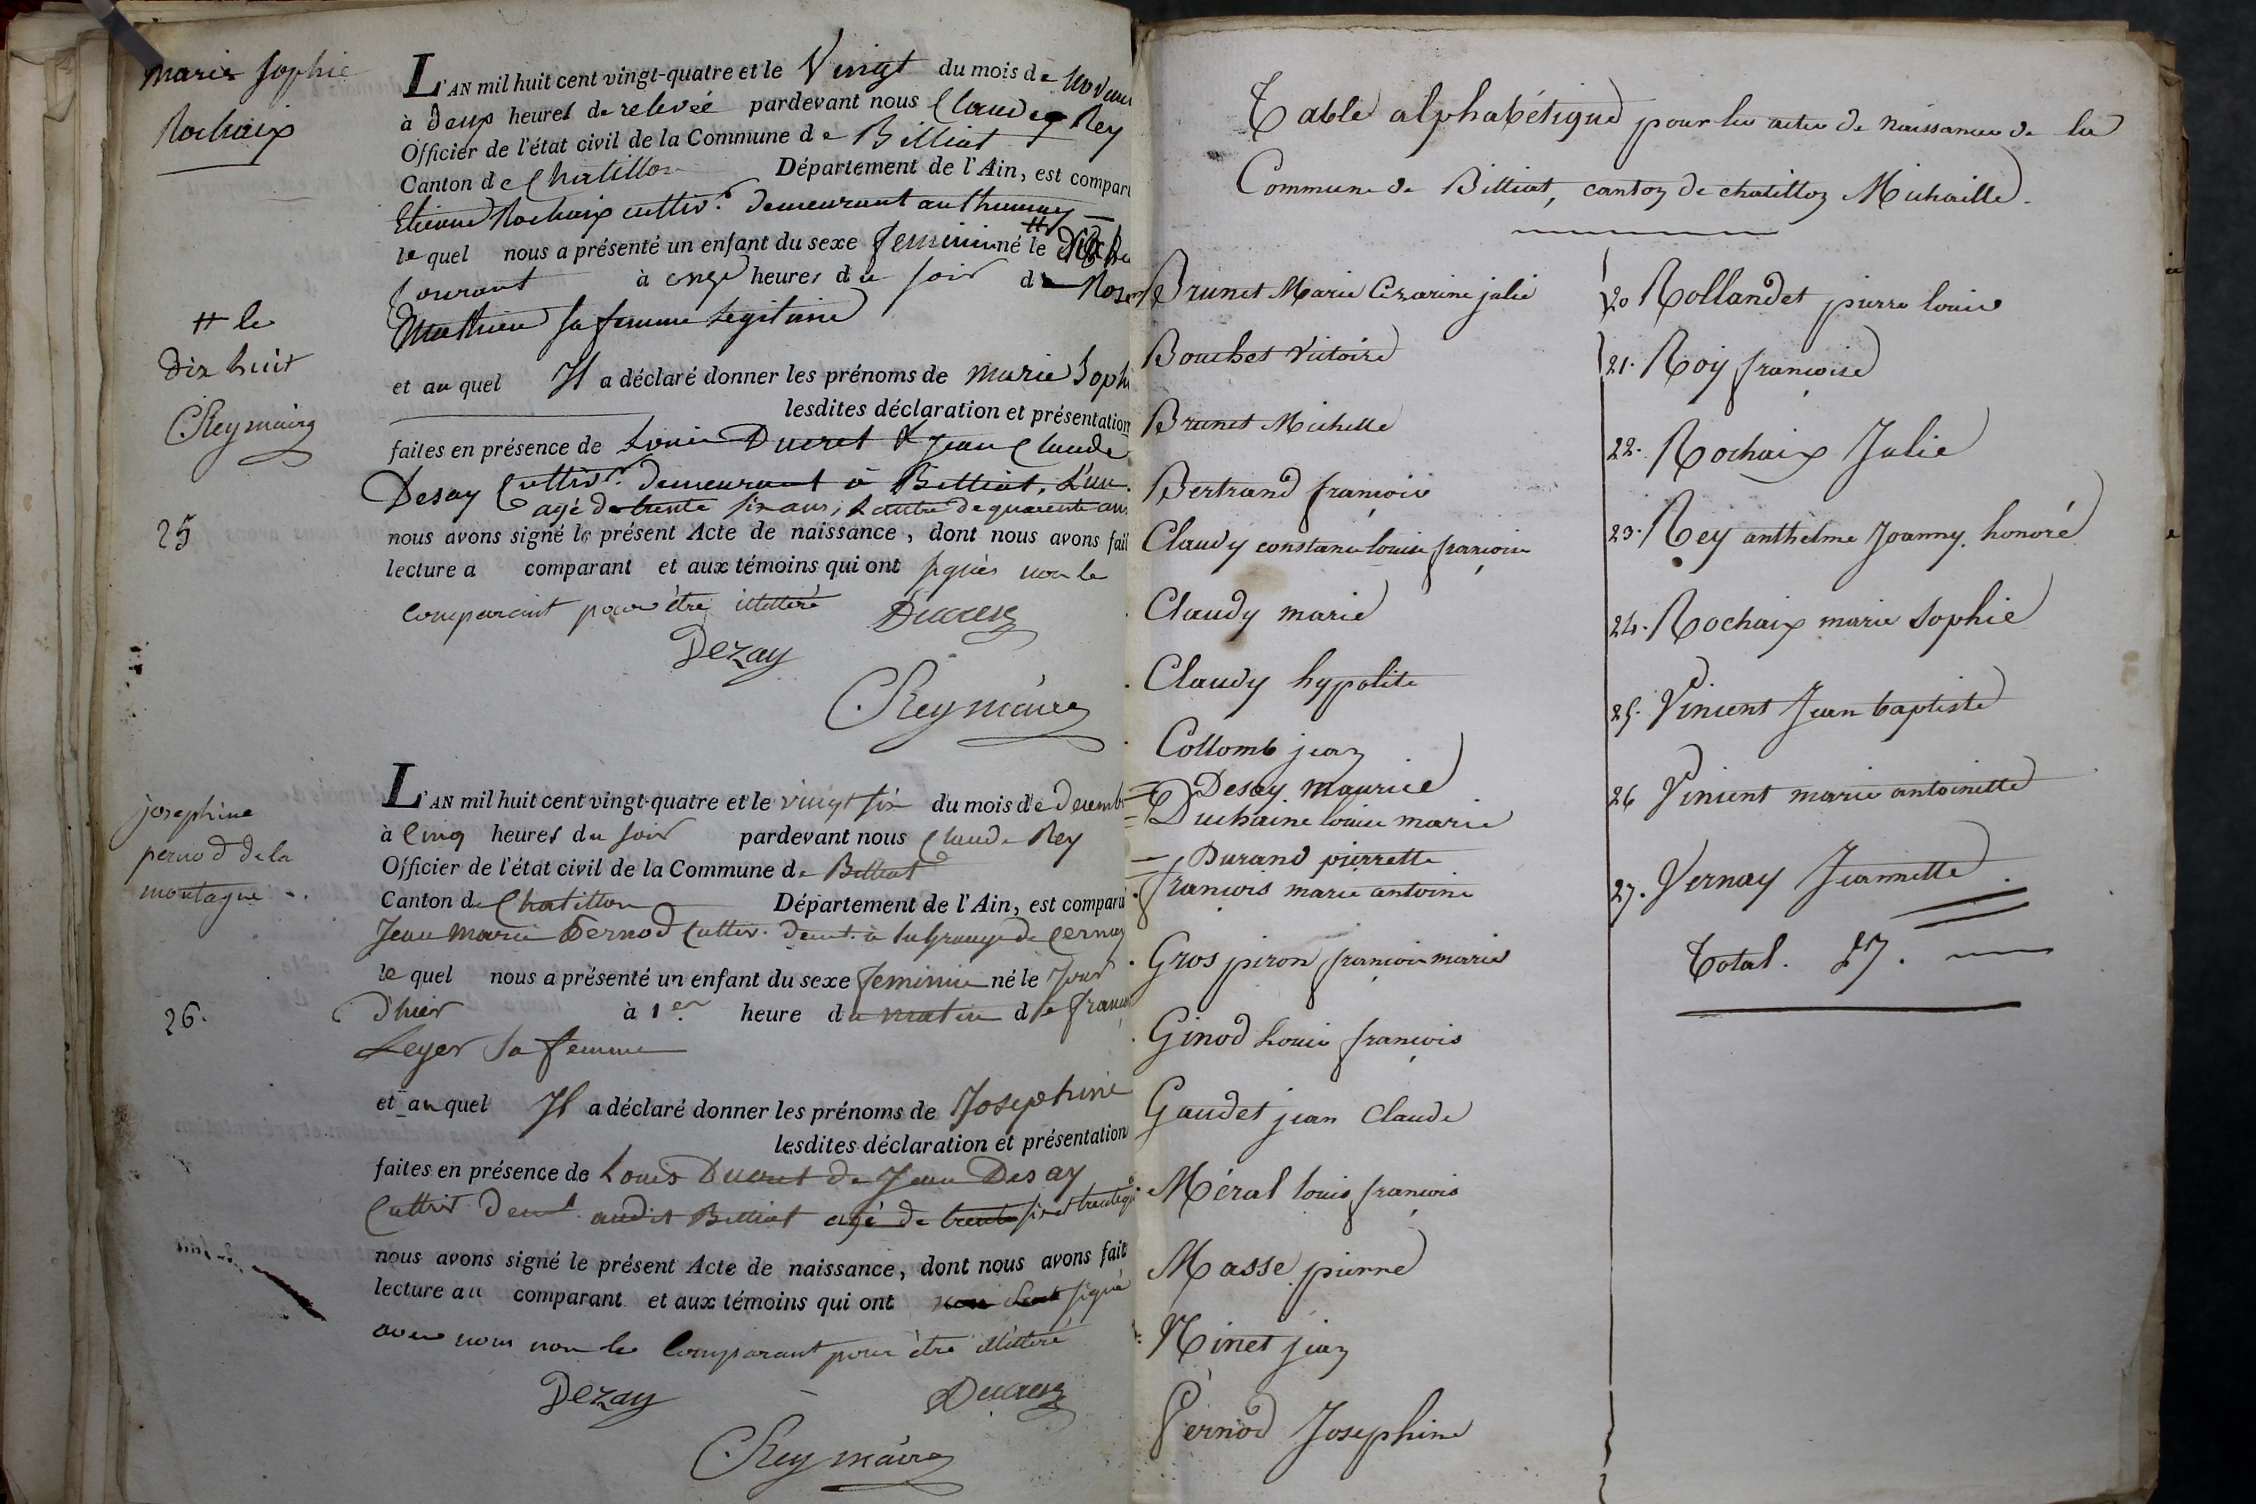 marie Sophie
Rochaix
# le
dix huit
CRey maire
25
L'AN mil huit cent vingt-quatre et le Vingt du mois de Novem
à deux heures de relevée pardevant nous Claude Rey
Officier de l'état civil de la Commune de Billiat
Canton de Chatillon Département de l'Ain, est compar
Etienne Rochaix cultivr. demeurant
le quel nous a présenté un enfant du sexe feminin né le #
Courant à onze heures du soir de
Mathieu sa femme Legitime
et au quel Il a déclaré donner les prénoms de marie Soph
lesdites déclaration et présentation
faites en présence de Louis Ducret & Jean Claude
Desay Cultivr. demeurant à Billiat, L'un
agé de trente six ans, L'autre de quarente ans
nous avons signé le présent Acte de naissance, dont nous avons fait
lecture a comparant et aux témoins qui ont signés non le
comparant pour être illitéré
Ducret
Dezay
CRey maire
josephine
pernod de la
montagne
26.
L'AN mil huit cent vingt-quatre et le vingt six du mois de decemb
à Cinq heures du soir pardevant nous Claude Rey
Officier de l'état civil de la Commune de Billiat
Canton de Chatillon Département de l'Ain, est comparu
Jean Marie Pernod Cultiv. demt. à la grange de Cernay
le quel nous a présenté un enfant du sexe feminin né le Jour
d'hier à 1er heure du matin de
Leyer Sa femme
et au quel Il a déclaré donner les prénoms de Josephine
lesdites déclaration et présentation
faites en présence de Louis Ducret de Jean Desay
Cultivr demt audit Billiat agé de trente six et
nous avons signé le présent Acte de naissance, dont nous avons fait
lecture au comparant et aux témoins qui ont signé
avec nous non le Comparant pour être illitéré
Dezay Ducret
CRey maire
Table alphabétique pour les actes de naissances de la
Commune de Billiat, canton de chatillon Michaille.
Brunet Marie Cezarine julie
Bouchet Victoire
Brunet Michelle
Bertrand françois
Claudy constance louise françoise
Claudy marie
Claudy hypolite
Collomb jean
Desay maurice
Duchaine louise marie
Durand pierrette
françois marie antoine
Gros piron françois marie
Ginod Louis françois
Gaudet jean Claude
Méral louis françois
Masse pierre
Ninet jean
Pernod Josephine
20 Rollandet pierre louis
21. Roy françoise
22. Rochaix Julie
23. Rey anthelme Joanny honoré
24. Rochaix marie Sophie
25. Vincent Jean baptiste
26 Vincent marie antoinette
27. Vernay Jeannette
Total. 27.